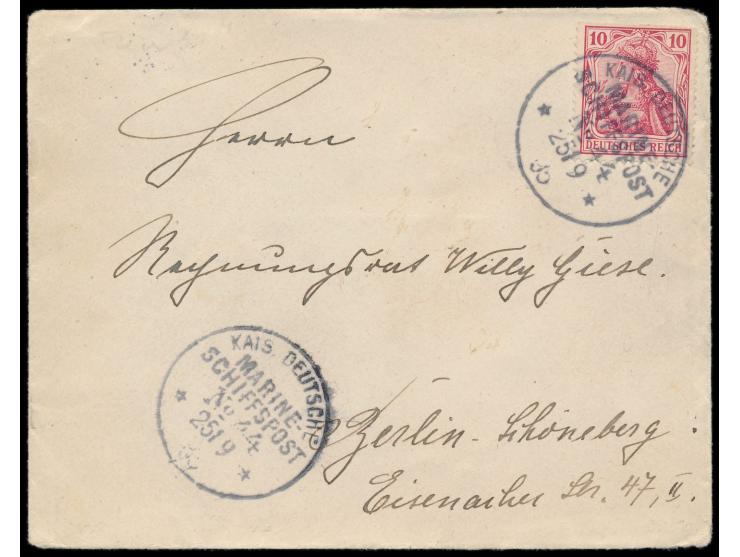 10 10
DEUTSCHES REICH
KAIS. DEUTSCHE
MARINE-
SCHIFFSPOST
No 44
25/9
Herrn
Rechnungsrat Willy Giese.
KAIS. DEUTSCHE
MARINE-
SCHIFFSPOST
No 44
25/9
Berlin-Schöneberg.
Eisenacher Str. 47, II.